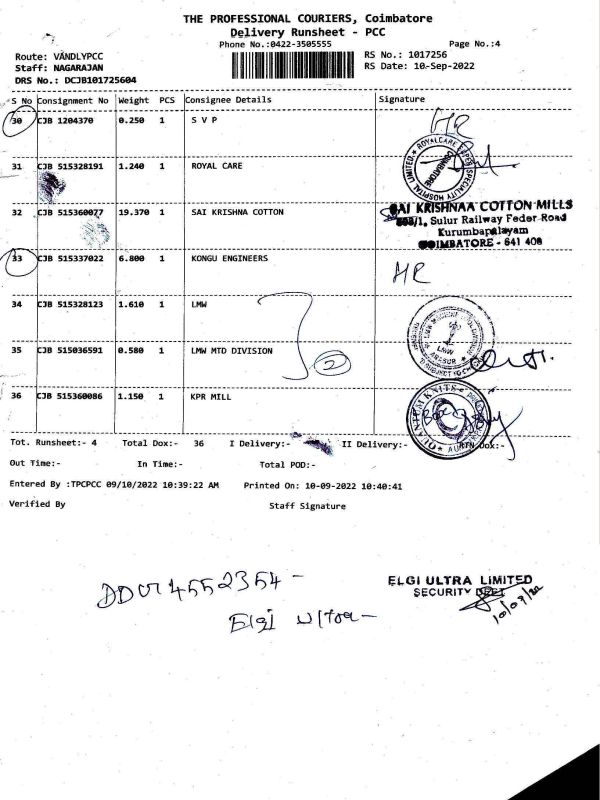 THE PROFESSIONAL COURIERS, Coimbatore
Delivery Runsheet - PCC
Phone No.:0422-3505555 Page No.:4
Route: VANDLYPCC RS No.: 1017256
Staff: NAGARAJAN RS Date: 10-Sep-2022
DRS No.: DCJB101725604
S No Consignment No Weight PCS Consignee Details Signature
30 CJB 1204370 0.250 1 S V P
31 CJB 515328191 1.240 1 ROYAL CARE
ROYALCARE SUPER SPECIALITY HOSPITAL LIMITED
COIMBATORE
32 CJB 515360077 19.370 1 SAI KRISHNA COTTON
SAI KRISHNAA COTTON MILLS
/1, Sulur Railway Feder Road
Kurumbapalayam
COIMBATORE - 641 408
33 CJB 515337022 6.800 1 KONGU ENGINEERS
34 CJB 515328123 1.610 1 LMW
35 CJB 515036591 0.580 1 LMW MTD DIVISION
2
LMW
36 CJB 515360086 1.150 1 KPR MILL
Tot. Runsheet:- 4 Total Dox:- 36 I Delivery:- II Delivery:- Dox:-
Out Time:- In Time:- Total POD:-
Entered By :TPCPCC 09/10/2022 10:39:22 AM Printed On: 10-09-2022 10:40:41
Verified By Staff Signature
4552354 -
Elgi Ultra -
ELGI ULTRA LIMITED
SECURITY DEPT
10/09/22